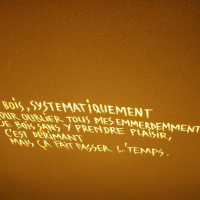 BOIS, SYSTEMATIQUEMENT
OUR OUBLIER TOUS MES EMMERDEMMENT
JE BOIS SANS Y PRENDRE PLAISIR,
C'EST DÉRIMANT
MAIS ÇA FAIT PASSER L'TEMPS.